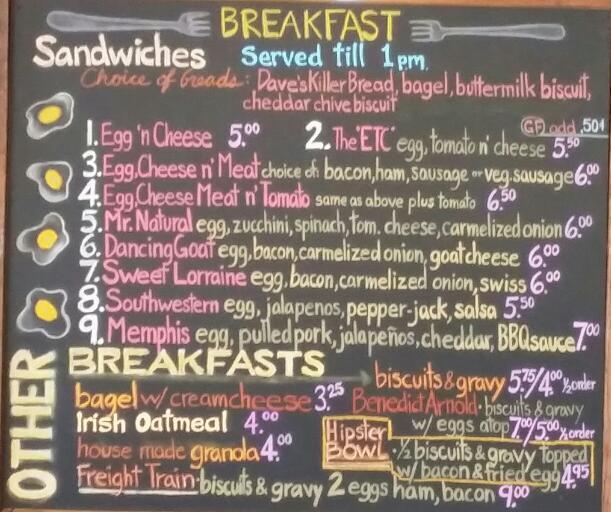 BREAKFAST
Sandwiches Served till 1pm.
Choice of breads: Dave's Killer Bread, bagel, buttermilk biscuit,
cheddar chive biscuit
GF add .50¢
1. Egg 'n Cheese 5.00 2. The "ETC" egg, tomato n' cheese 5.50
3. Egg, Cheese n' Meat choice of: bacon, ham, sausage or veg. sausage 6.00
4. Egg, Cheese Meat n' Tomato same as above plus tomato 6.50
5. Mr. Natural egg, zucchini, spinach, tom. cheese, carmelized onion 6.00
6. Dancing Goat egg, bacon, carmelized onion, goat cheese 6.00
7. Sweet Lorraine egg, bacon, carmelized onion, swiss 6.00
8. Southwestern egg, jalapenos, pepper-jack, salsa 5.50
9. Memphis egg, pulled pork, jalapeños, cheddar, BBQ sauce 7.00
OTHER BREAKFASTS
biscuits & gravy 5.75/4.00 ½ order
bagel w/ creamcheese 3.25
Benedict Arnold · biscuits & gravy
w/ eggs atop 7.00/5.00 ½ order
Irish Oatmeal 4.00
house made granola 4.00
Hipster BOWL · ½ biscuits & gravy topped
w/ bacon & fried egg 4.95
Freight Train · biscuits & gravy 2 eggs ham, bacon 9.00